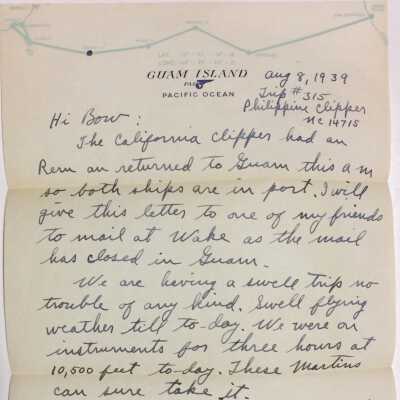 GUAM ISLAND
PAA
PACIFIC OCEAN
Aug 8, 1939
Trip #315
Philippine Clipper
NC 14715
Hi Bow:
The California Clipper had an
Rem an returned to Guam this a m
so both ships are in port. I will
give this letter to one of my friends
to mail at Wake as the mail
has closed in Guam.
We are having a swell trip no
trouble of any kind. Swell flying
weather till to-day. We were on
instruments for three hours at
10,500 feet to-day. These Martins
can sure take it.